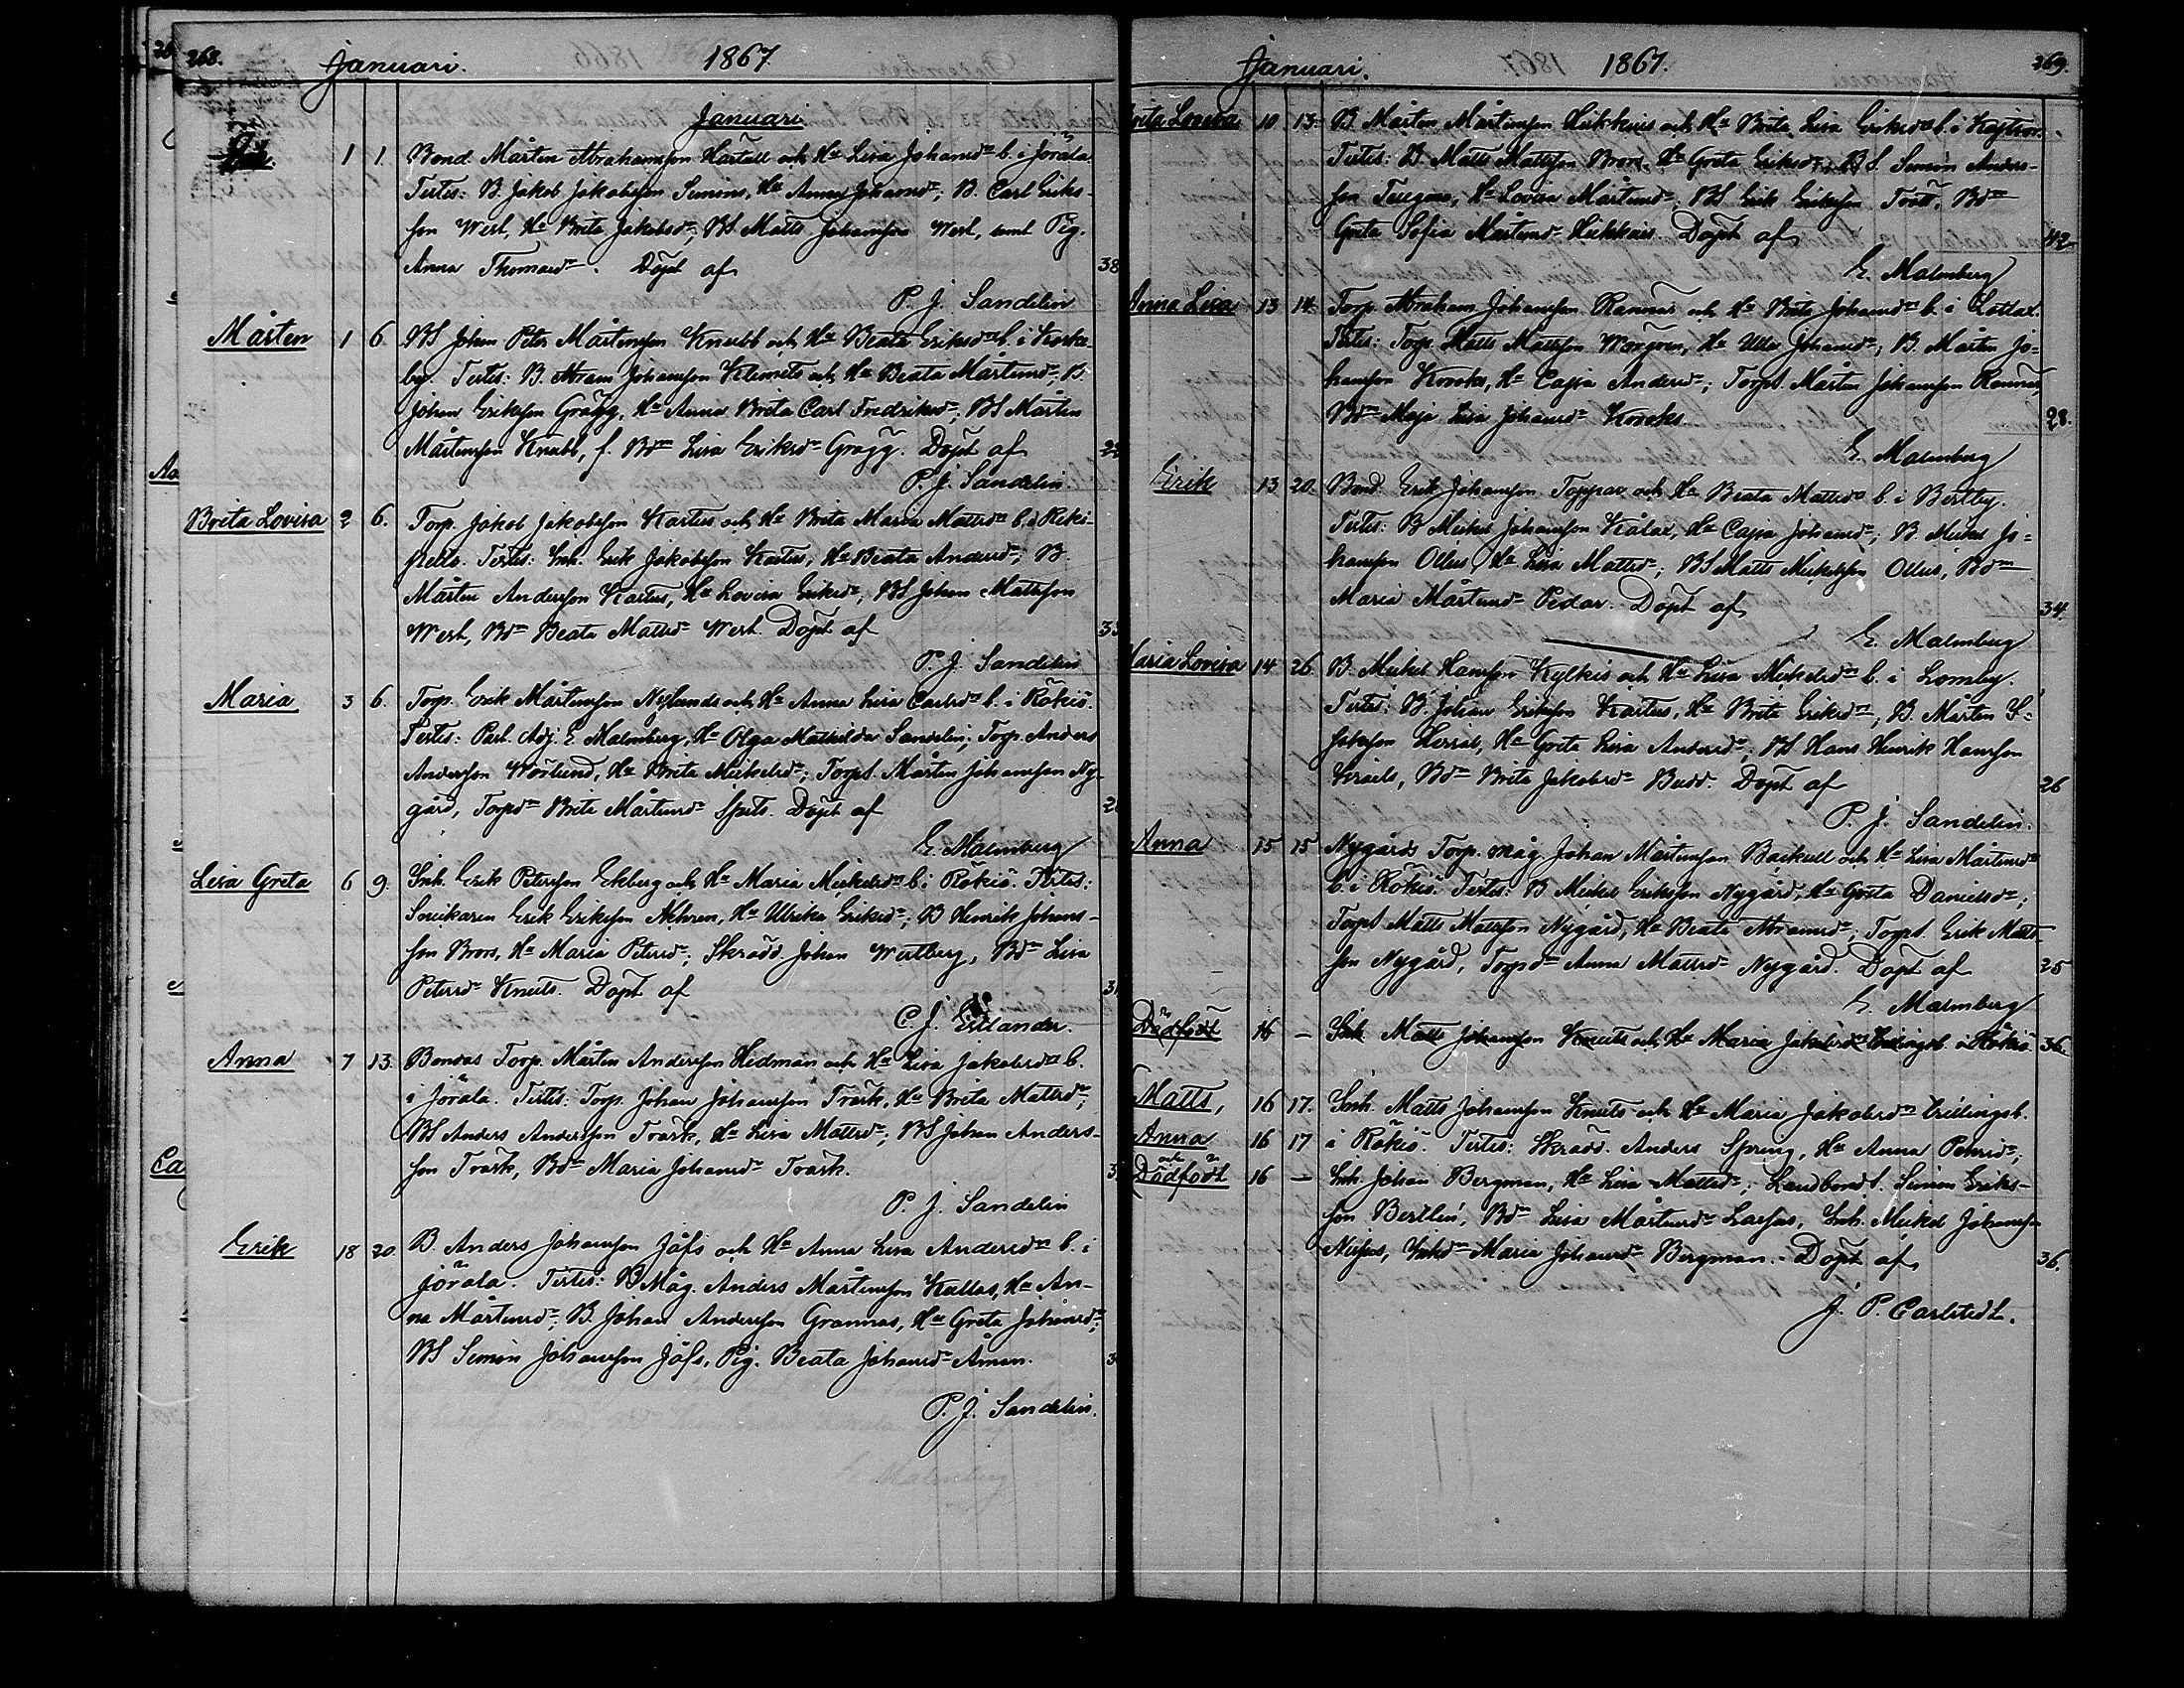 268.
Januari.
1867
Januari
1 1. Bond. Mårten Abrahamsson Härtull och Hu Lisa Johansdr b. i Jörala.
Testes: B. Jakob Jakobsson Simons, Hu Anna Johansdr; B. Carl Eriks-
son West, Hu Brita Jakobsdr; BS Matts Johansson West, samt Pig.
Anna Thomasdr. Döpt af 38
P. J. Sandelin
Mårten 1 6. BS Johan Peter Mårtensson Knubb och Hu Beata Eriksdr b. i Korke-
by. Testes: B. Abram Johansson Klemets och Hu Beata Mårtensdr; B.
Johan Eriksson Grägg, Hu Anna Brita Carl Fredriksdr; BS Mårten
Mårtensson Knubb, f. Bdr Lisa Eriksdr Grägg. Döpt af
P. J. Sandelin.
Breta Lovisa 2 6. Torp. Jakob Jakobsson Kartus och Hu Brita Maria Mattsdr b. i Reki-
pelto. Testes: Inh. Erik Jakobsson Kartus, Hu Beata Andersdr; B.
Mårten Andersson Kartus, Hu Lovisa Eriksdr; BS Johan Mattsson
West, Bdr Beata Mattsdr West. Döpt af
P. J. Sandelin
Maria 3 6. Torp. Erik Mårtensson Nylunds och Hu Anna Lisa Carlsdr b. i Rökiö.
Testes: Past. Adj. E. Malmberg, Hu Olga Mathilda Sandelin; Torp. Anders
Andersson Wörlund, Hu Brita Mickelsdr; Torps. Mårten Johansson Ny-
gård, Torpdr Brita Mårtensdr Spets. Döpt af
E. Malmberg
Lisa Greta 6 9. Inh. Erik Petersson Ekberg och Hu Maria Mickelsdr b. i Rökiö. Testes:
Snickaren Erik Eriksson Åkren, Hu Ulrika Eriksdr; B Henrik Johans-
son Brors, Hu Maria Petersdr; Skrädd. Johan Westberg, Bdr Lisa
Petersdr Knuts. Döpt af
C. J. Estlander.
Anna 7 13. Bonsas Torp. Mårten Andersson Hedman och Hu Lisa Jakobsdr b.
i Jörala. Testes: Torp. Johan Johansson Träsk, Hu Brita Mattsdr;
BS Anders Andersson Träsk, Hu Lisa Mattsdr; BS Johan Anders-
son Träsk, Bdr Maria Johansdr Träsk.
P. J. Sandelin
Erik 18 20. B. Anders Johansson Jåfs och Hu Anna Lisa Andersdr b. i
Jörala. Testes: B Måg. Anders Mårtensson Kallas, Hu An-
na Mårtensdr; B. Johan Andersson Grannas, Hu Greta Johansdr;
BS Simon Johansson Jåfs, Pig. Beata Johansdr Åman.
P. J. Sandelin.
Januari.
1867.
369.
Greta Lovisa 10 13. B. Mårten Mårtensson Heikkuis och Hu Brita Lisa Eriksdr b. i Kaitsor.
Testes: B. Matts Mattsson Brors, Hu Greta Eriksdr; BS. Simon Anders-
son Teugmo, Hu Lovisa Mårtensdr; BS Erik Eriksson Tvätt, Bdr
Greta Sofia Mårtensdr Heikkuis. Döpt af 42
E. Malmberg
Anna Lisa 13 14. Torp. Abraham Johansson Rannas och Hu Brita Johansdr b. i Lottlax.
Testes: Torp. Matts Mattsson Worgren, Hu Ulla Johansdr; B. Mårten Jo-
hansson Krooks, Hu Cajsa Andersdr; Torps. Mårten Johansson Rannas,
Bdr Maja Lisa Johansdr Krooks. 28.
E. Malmberg
Erik 13 20. Bond. Erik Johansson Toppar och Hu Beata Mattsdr b. i Bertby.
Testes: B Mickel Johansson Kålax, Hu Cajsa Johansdr; B. Mickel Jo-
hansson Ollus, Hu Lisa Mattsdr; BS Matts Mickelsson Ollus, Bdr
Maria Mårtensdr Pedar. Döpt af 34.
E. Malmberg
Maria Lovisa 14 26. B. Mickel Hansson Kylkis och Hu Lisa Mickelsdr b. i Lomby.
Testes: B. Johan Eriksson Kartus, Hu Brita Eriksdr, B. Mårten I-
saksson Herrals, Hu Greta Lisa Andersdr; BS Hans Henrik Hansson
Israels, Bdr Brita Jakobsdr Budd. Döpt af 26
P. J. Sandelin.
Anna 15 15 Nygårds Torp. måg Johan Mårtensson Backull och Hu Lisa Mårtensdr
b. i Rökiö. Testes: B Mickel Eriksson Nygård, Hu Greta Danielsdr;
Torps Matts Mattsson Nygård, Hu Beata Abramsdr; Torps. Erik Matts-
son Nygård, Torpsdr Anna Mattsdr Nygård. Döpt af 25
E. Malmberg
Dödfödt 16 — Inh. Matts Johansson Knuts och Hu Maria Jakobsdr trillingsb. i Rökiö. 36.
Matts, 16 17. Inh. Matts Johansson Knuts och Hu Maria Jakobsdr trillingsb.
Anna 16 17 i Rökiö. Testes: Skrädd. Anders Spring, Hu Anna Petersdr;
och
Dödfödt 16 — Inh. Johan Bergman, Hu Lisa Mattsdr; Landbonds. Simon Eriks-
son Bertlin, Bdr Lisa Mårtensdr Lassus, Inh. Mickel Johansson
Nissas, Inhdr Maria Johansdr Bergman. Döpt af 36.
J. P. Carlstedt.